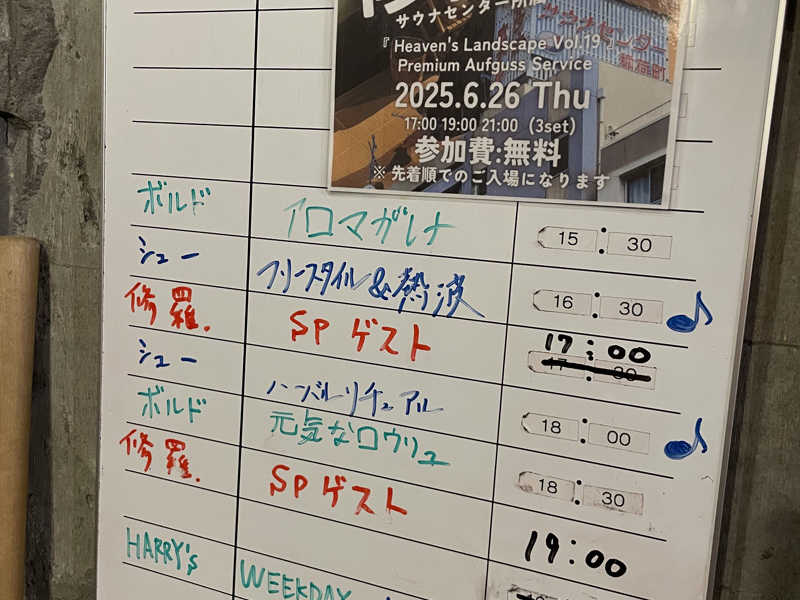 サウナセンター所属
『 Heaven's Landscape Vol.19 』
Premium Aufguss Service
2025.6.26 Thu
17:00 19:00 21:00 (3set)
参加費:無料
※ 先着順でのご入場になります
サウナセンター
ボルド アロマガレナ 15:30
シュー フリースタイル&熱波 16:30
修羅. SPゲスト 17:00
シュー ハーバルリチュアル 18:00
ボルド 元気なロウリュ 18:30
修羅. SPゲスト 19:00
HARRY's WEEKDAY